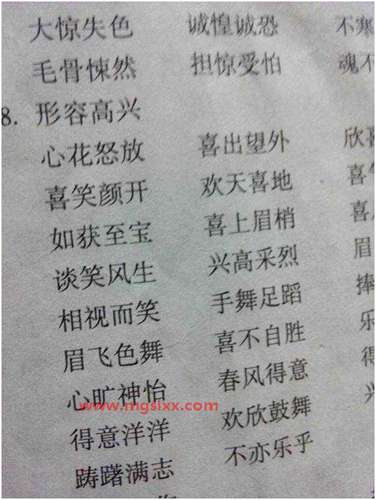 大惊失色 诚惶诚恐 不寒
毛骨悚然 担惊受怕 魂
8. 形容高兴
心花怒放 喜出望外 欣
喜笑颜开 欢天喜地 喜
如获至宝 喜上眉梢 喜
谈笑风生 兴高采烈 眉
相视而笑 手舞足蹈 捧
眉飞色舞 喜不自胜 乐
心旷神怡 春风得意 得
www.mgsixx.com
得意洋洋 欢欣鼓舞 兴
踌躇满志 不亦乐乎